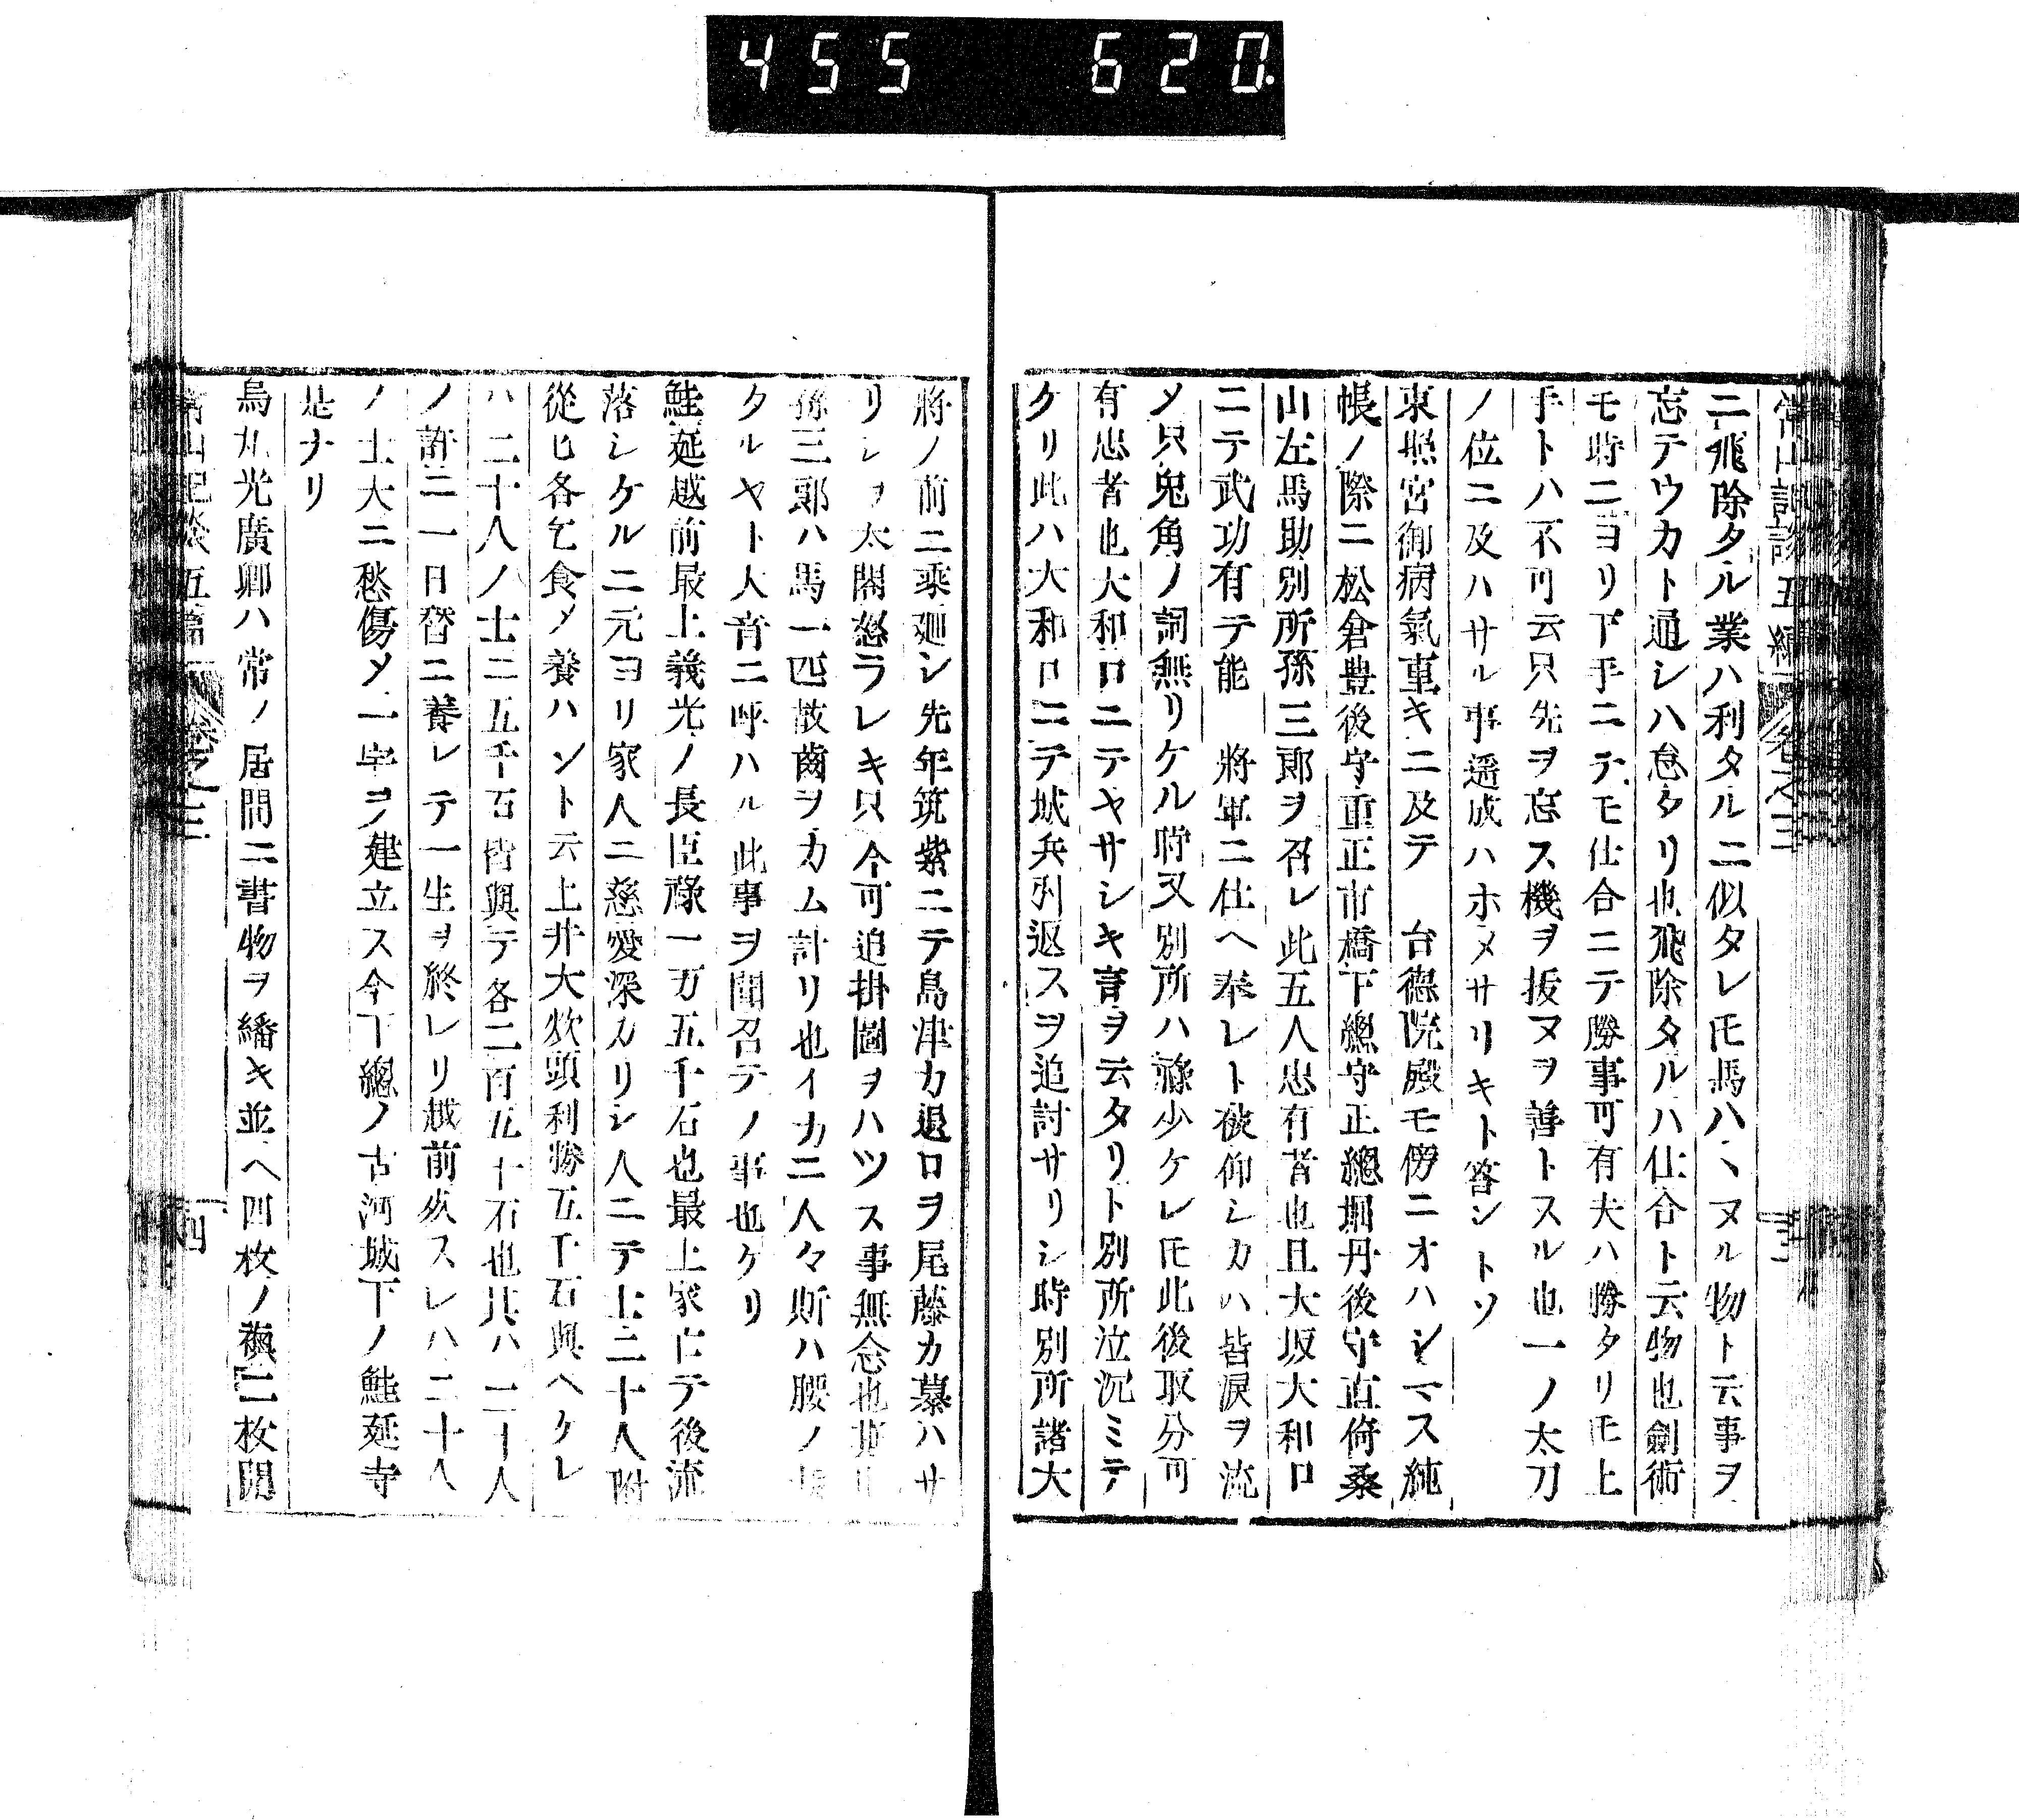 455 620.
常山記談五編 卷之三 三
ニ飛除タル業ハ利タルニ似タレ𪜈馬ハハヽヌル物ト云事ヲ
忘テウカト通シハ怠タリ也飛除タルハ仕合ト云物也劍術
モ時ニヨリ下手ニテモ仕合ニテ勝事可有夫ハ勝タリ𪜈上
手トハ不可云只先ヲ忘ス機ヲ抜ヌヲ善トスル也一ノ太刀
ノ位ニ及ハサル事遥成ハホメサリキト答ントソ
東照宮御病氣重キニ及テ 台德院殿モ傍ニオハシマス純
帳ノ際ニ松倉豊後守重正市橋下總守正總堀丹後守直倚桑
山左馬助別所孫三郎ヲ召レ此五人忠有者也且大坂大和口
ニテ武功有テ能 將軍ニ仕ヘ奉レト被仰シカハ皆淚ヲ流
メ只兔角ノ詞無リケル時又別所ハ祿少ケレ𪜈此後取分可
有忠者也大和口ニテヤサシキ言ヲ云タリト別所泣沉ミテ
クリ此ハ大和口ニテ城兵引返スヲ追討サリシ時別所諸大
將ノ前ニ乘廻シ先年筑紫ニテ島津カ退口ヲ尾藤カ慕ハサ
リシヲ太閤怒ラレキ只今可追掛圖ヲハツス事無念也
孫三郎ハ馬一匹故齒ヲカム計リ也イカニ人々斯ハ腰ノ
タルヤト大音ニ呼ハル此事ヲ聞召テノ事也ケリ
鮭延越前最上義光ノ長臣祿一万五千石也最上家亡テ後流
落シケルニ元ヨリ家人ニ慈愛深カリシ人ニテ士二十人附
從ヒ各乞食メ養ハント云土井大炊頭利勝五千石與ヘケレ
ハ二十人ノ士ニ五千石皆與テ各二百五十石也其ハ二十人
ノ許ニ一日替ニ養レテ一生ヲ終レリ越前死スレハ二十人
ノ士大ニ愁傷メ一宇ヲ建立ス今下總ノ古河城下ノ鮭延寺
是ナリ
烏丸光廣卿ハ常ノ居間ニ書物ヲ繙キ並ヘ四枚ノ襖二枚開
常山記談五篇 卷之三 四